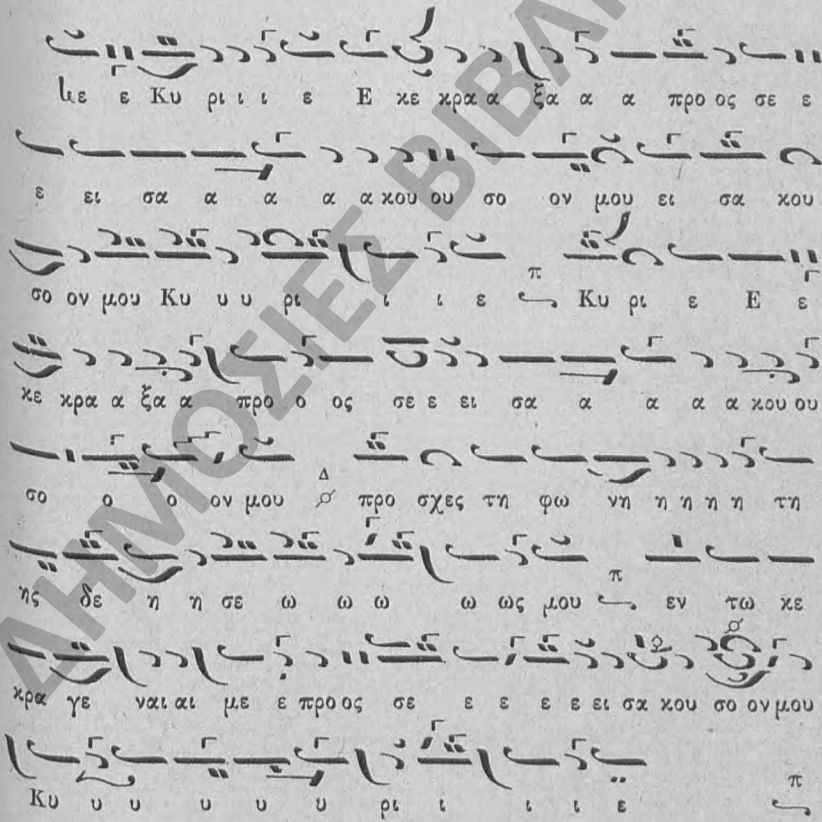 κε ε Κυ ρι ι ι ε Ε κε κρα α ξα α α προ ος σε ε
ε ει σα α α α α κου ου σο ον μου ει σα κου
σο ον μου Κυ υ υ ρι ι ι ε π Κυ ρι ε Ε ε
κε κρα α ξα α προ ο ος σε ε ει σα α α α α κου ου
σο ο ο ον μου Δ προ σχες τη φω νη η η η η τη
ης δε η η σε ω ω ω ω ως μου π εν τω κε
κρα γε ναι αι με ε προ ος σε ε ε ε ε ει σα κου σο ον μου
Κυ υ υ υ υ υ ρι ι ι ι ε π
ΔΗΜΟΣΙΕΣ ΒΙΒΛ